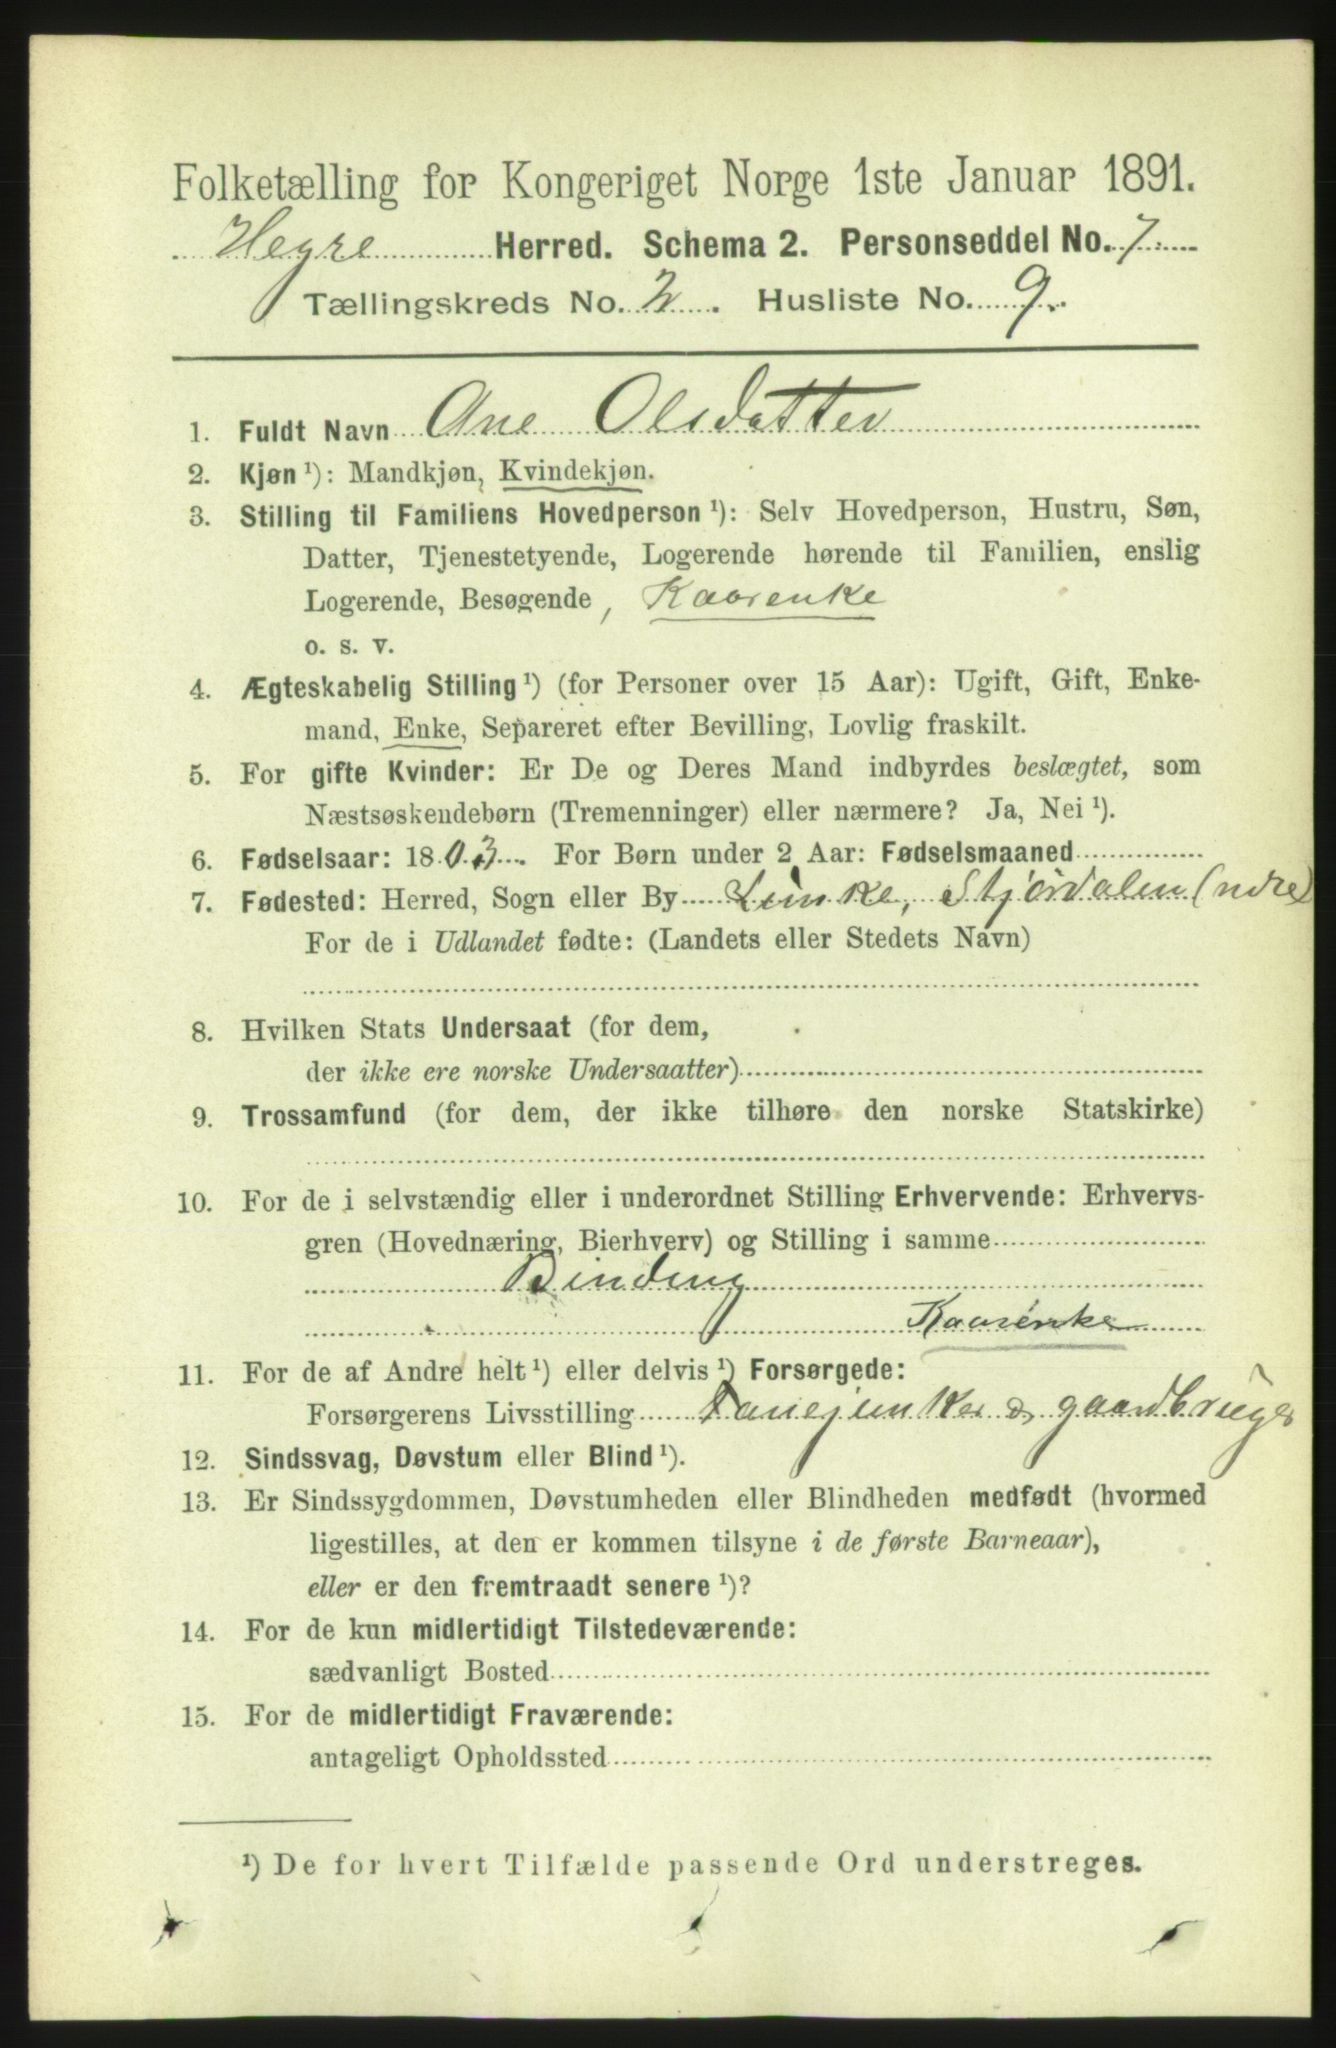 Folketælling for Kongeriget Norge 1ste Januar 1891.
Hegre Herred. Schema 2. Personseddel No. 7.
Tællingskreds No. 2. Husliste No. 9.
1. Fuldt Navn Ane Olsdatter
2. Kjøn ¹): Mandkjøn, Kvindekjøn.
3. Stilling til Familiens Hovedperson ¹): Selv Hovedperson, Hustru, Søn,
Datter, Tjenestetyende, Logerende hørende til Familien, enslig
Logerende, Besøgende, Kaarenke
o. s. v.
4. Ægteskabelig Stilling ¹) (for Personer over 15 Aar): Ugift, Gift, Enke-
mand, Enke, Separeret efter Bevilling, Lovlig fraskilt.
5. For gifte Kvinder: Er De og Deres Mand indbyrdes beslægtet, som
Næstsøskendebørn (Tremenninger) eller nærmere? Ja, Nei ¹).
6. Fødselsaar: 1803. For Børn under 2 Aar: Fødselsmaaned
7. Fødested: Herred, Sogn eller By Stjørdalen (ndre)
For de i Udlandet fødte: (Landets eller Stedets Navn)
8. Hvilken Stats Undersaat (for dem,
der ikke ere norske Undersaatter)
9. Trossamfund (for dem, der ikke tilhøre den norske Statskirke)
10. For de i selvstændig eller i underordnet Stilling Erhvervende: Erhvervs-
gren (Hovednæring, Bierhverv) og Stilling i samme
Binding
Kaarenke
11. For de af Andre helt ¹) eller delvis ¹) Forsørgede:
Forsørgerens Livsstilling gaardbruger
12. Sindssvag, Døvstum eller Blind ¹).
13. Er Sindssygdommen, Døvstumheden eller Blindheden medfødt (hvormed
ligestilles, at den er kommen tilsyne i de første Barneaar),
eller er den fremtraadt senere ¹)?
14. For de kun midlertidigt Tilstedeværende:
sædvanligt Bosted
15. For de midlertidigt Fraværende:
antageligt Opholdssted
¹) De for hvert Tilfælde passende Ord understreges.